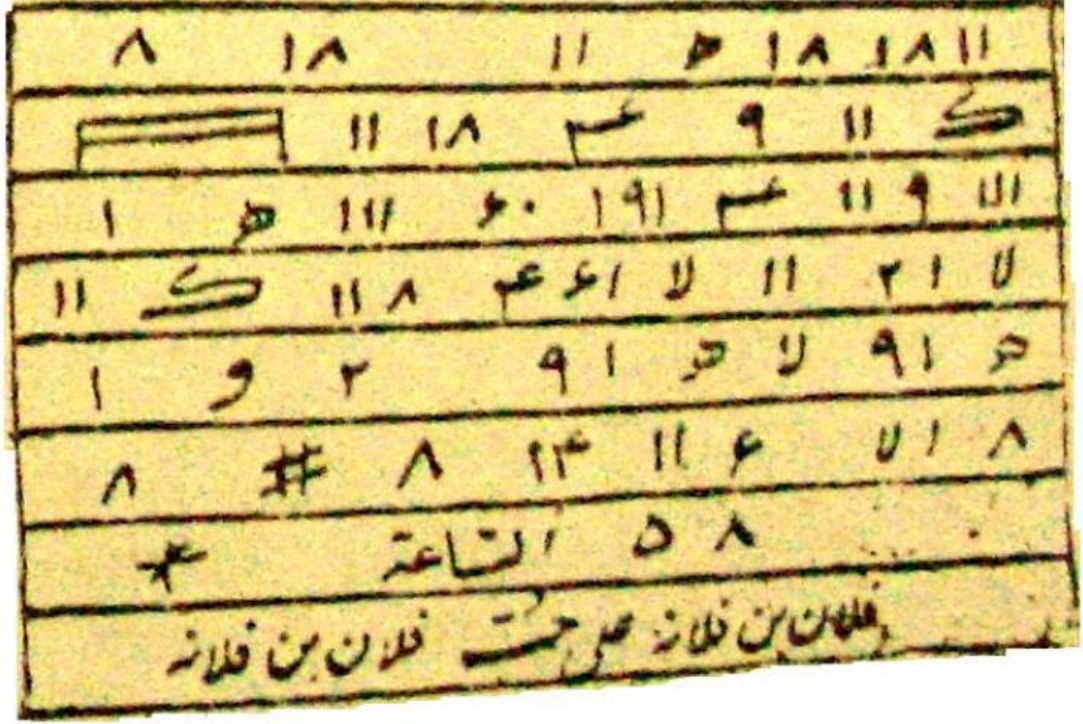 ١١ ١٨ ١٨ ھ ١١ ١٨ ٨
ک ١١ ٩ عـم ١٨ ١١
١١١ ٩ ١١ عـم ١٩١ ۶٠ ١١١ ھ ١
لا ١ ٢ ١١ لا ١۶۶ عم ٨ ١١ ک ١١
ھ ١ ٩ لا ھ ١ ٩ ٢ و ١
٨ ١ لا ۶ ١١ ١۴ ٨ # ٨
٨ ۵ الساعة
فلان بن فلانه على حبت فلان بن فلانه